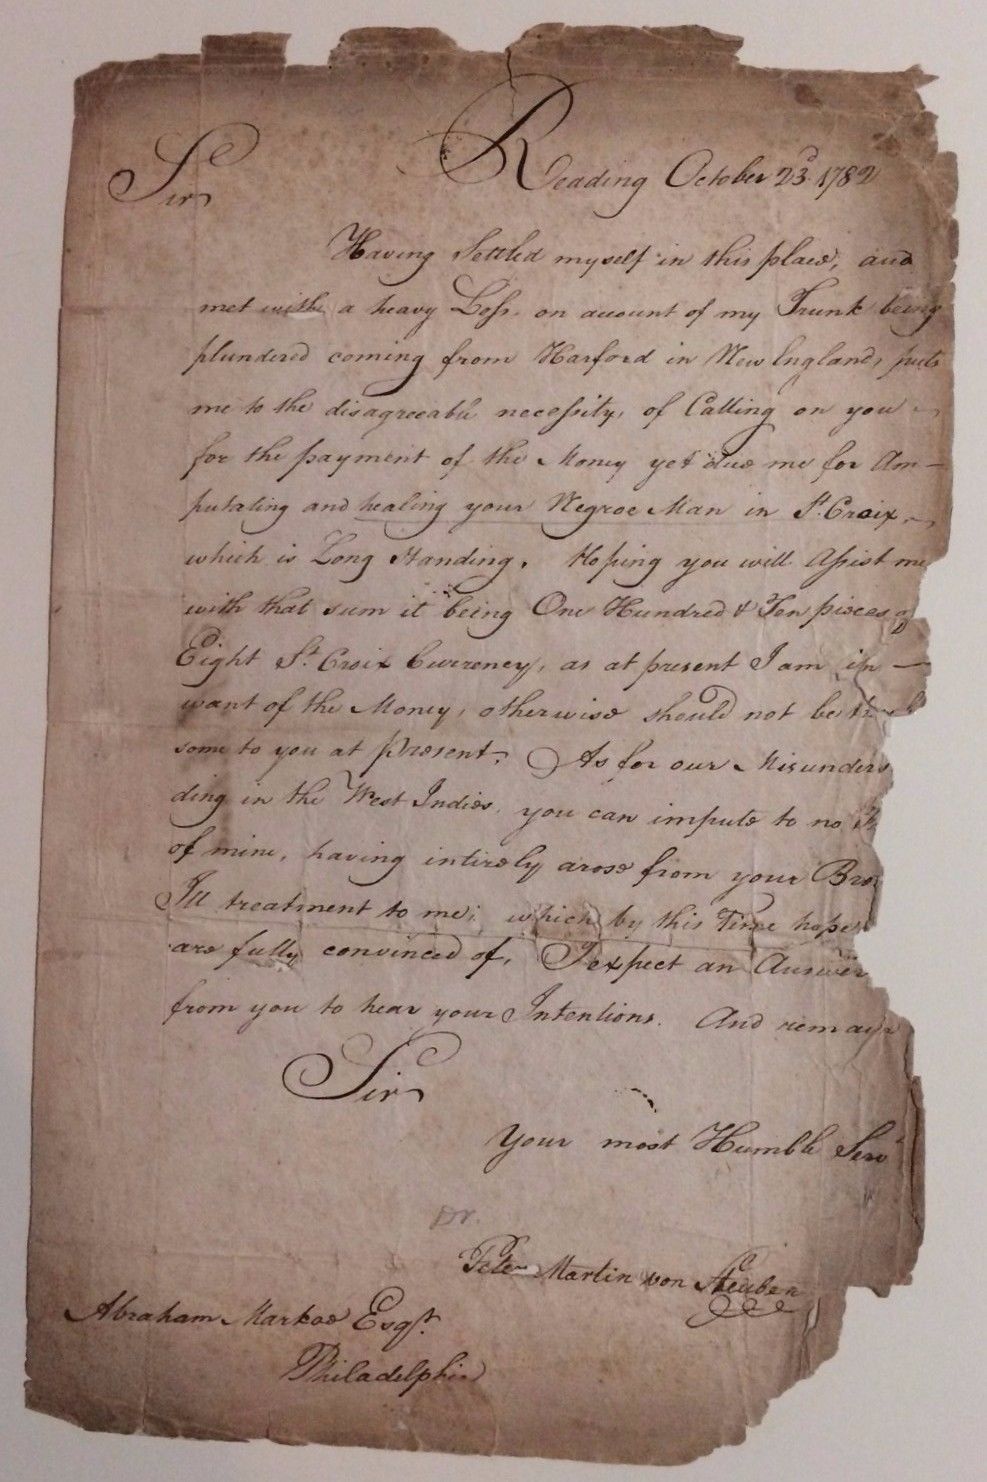 Reading October 23.d 1782
Sir
Having Settled myself in this place, and
met with a heavy Loss. on account of my Trunk being
plundered coming from Harford in New England, puts
me to the disagreeable necessity, of Calling on you
for the payment of the Money yet due me for Am-
putating and healing your Negroe Man in St. Croix,
which is Long Standing. Hoping you will Assist me
with that sum it being One Hundred & Ten pieces of
Eight St. Croix Currency, as at present I am in
want of the Money, otherwise should not be
some to you at Present. As for our Misunders
ding in the West Indies, you can impute to no
of mine, having intirely arose from your Bro
Ill treatment to me; which by this Time hope
are fully convinced of, I expect an Answer
from you to hear your Intentions. And remain
Sir
Your most Humble Serv
Dr.
Peter Martin von Steuben
Abraham Markoe Esqr.
Philadelphia